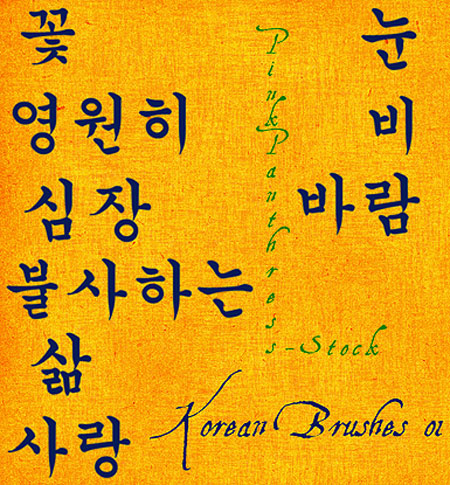 꽃
영원히
심장
불사하는
삶
사랑
눈
비
바람
PinkPanthress-Stock
Korean Brushes 01